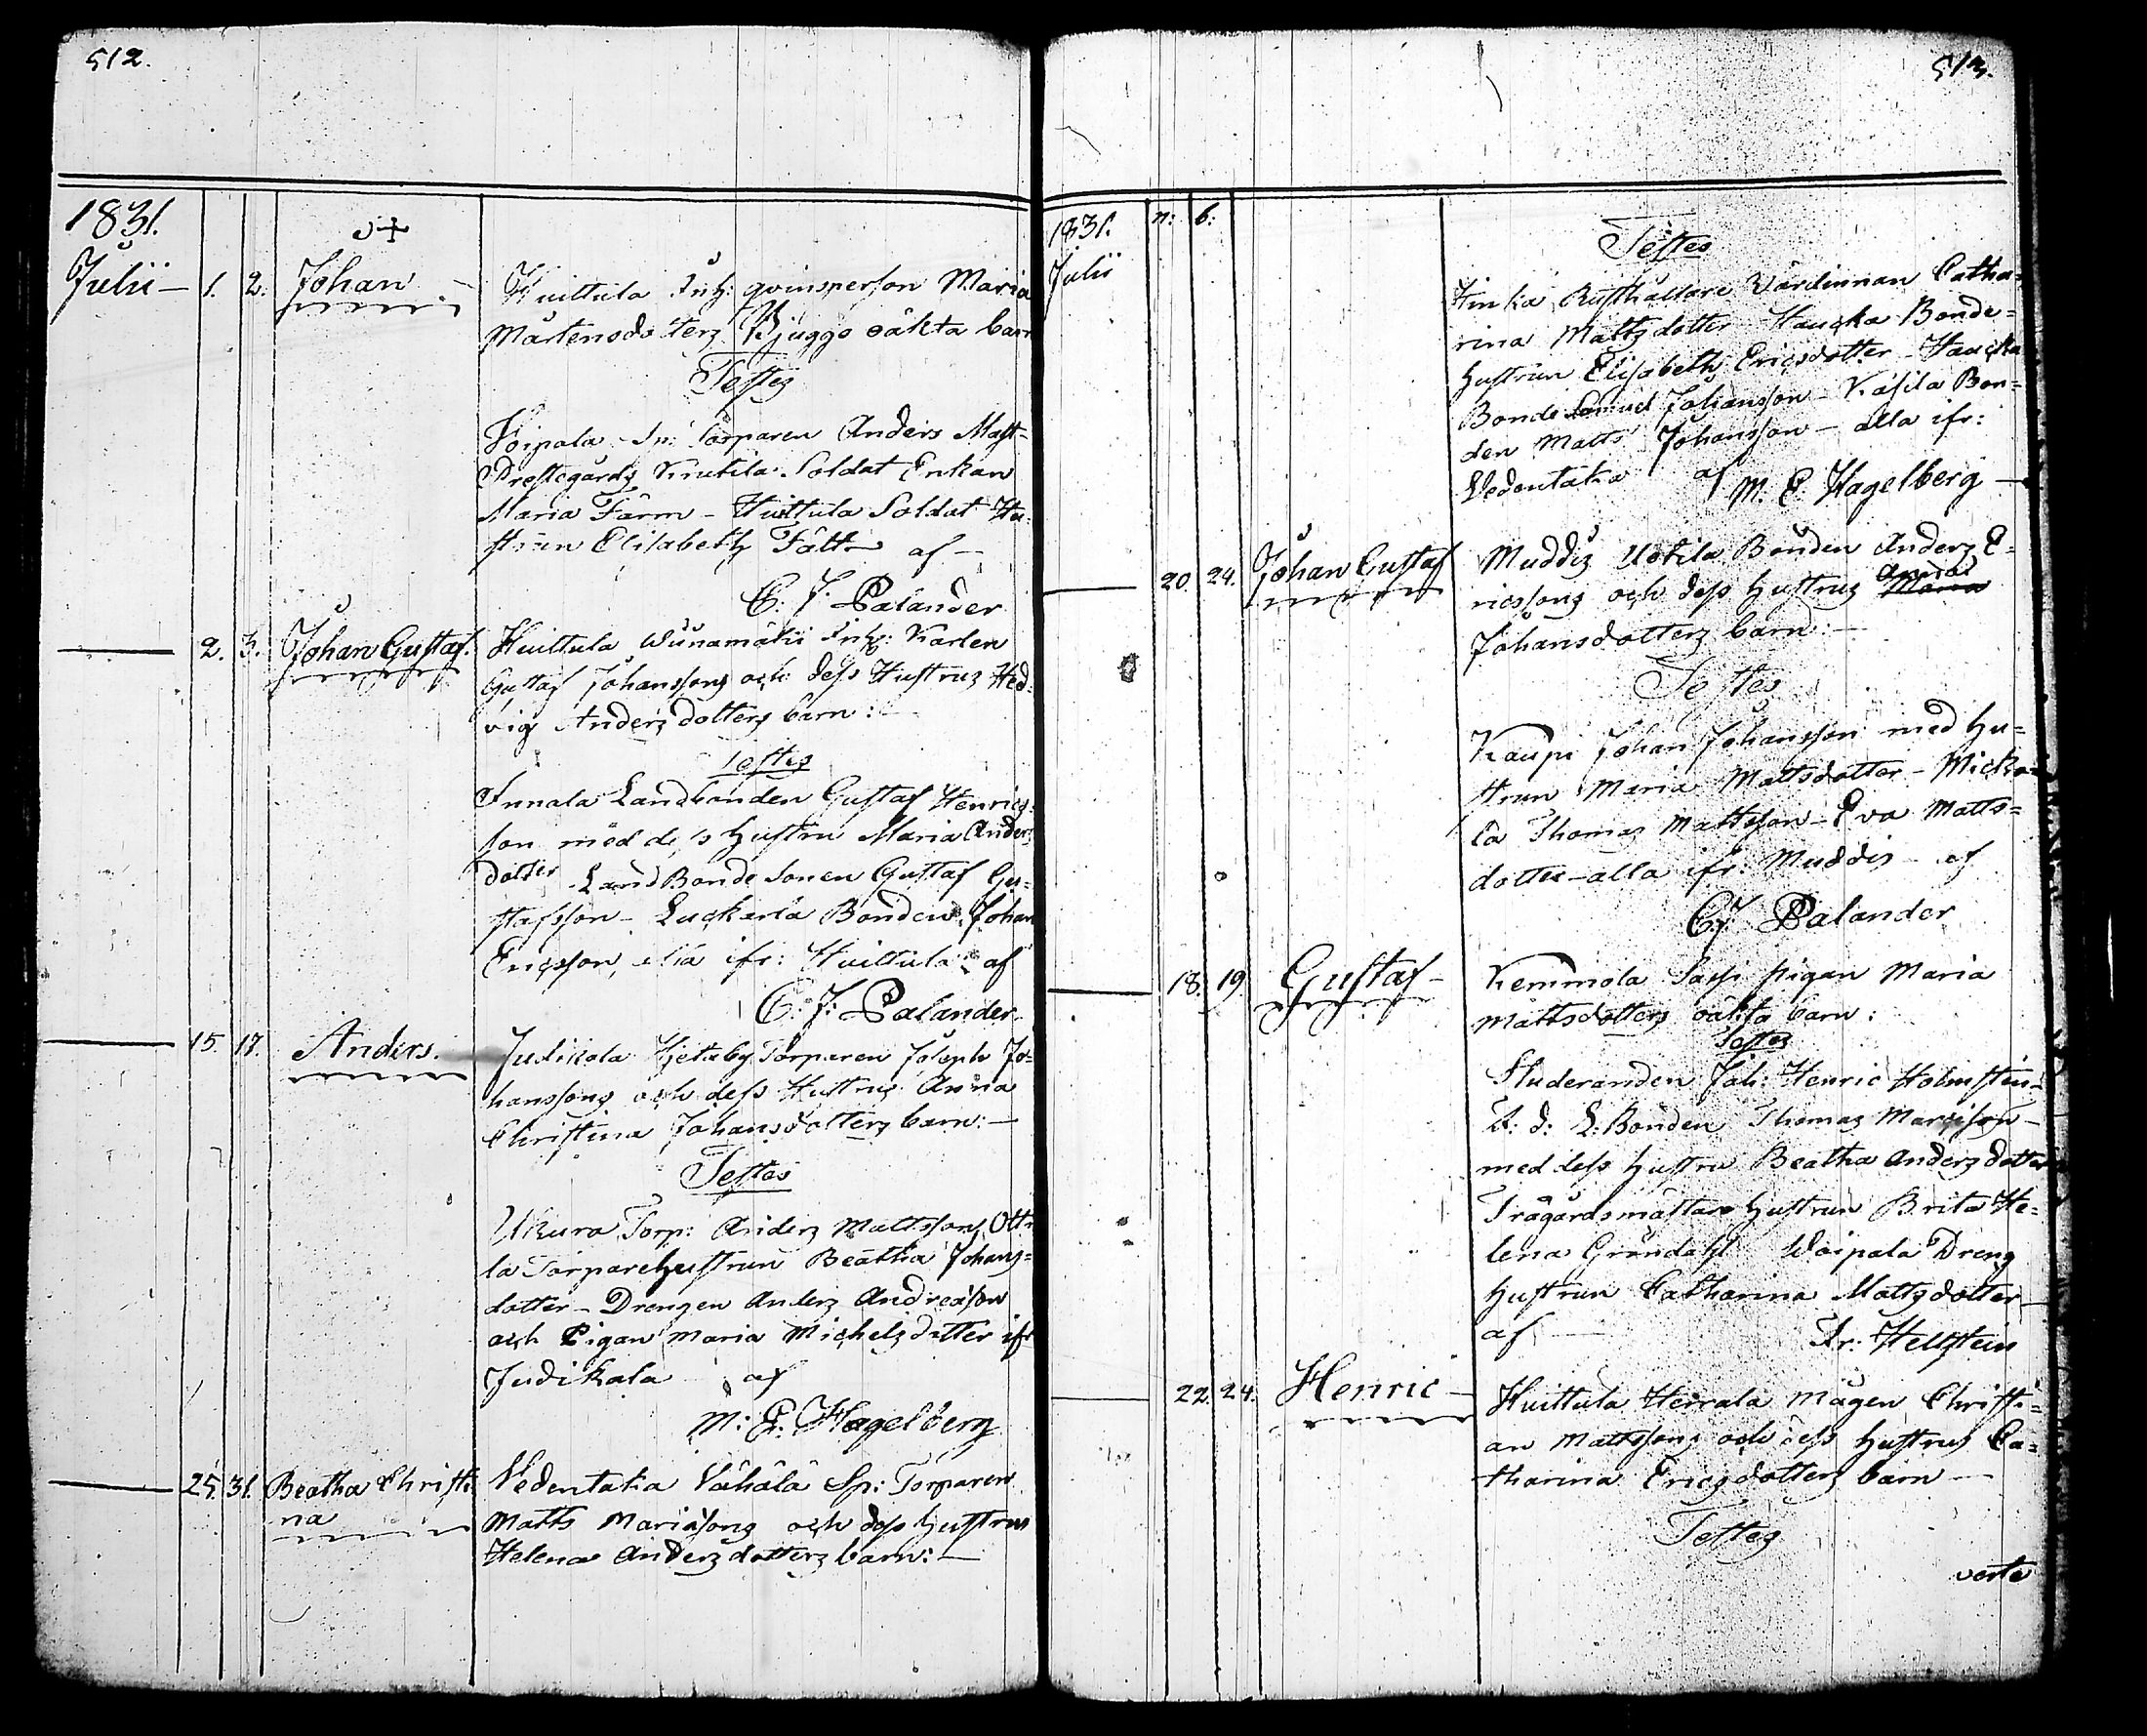 512.
1831.
Julii — 1. 2. Johan
Huittula Inh: qvinsperson Maria
Mårtensdotters Bjuggs oäkta barn
Testes
Voipala In: Torparen Anders Matt-
Prestegårds Knutila Soldat Enkan
Maria Farm – Huittula Soldat Hu-
strun Elisabeth Fält — af —
C. J. Palander
2. 3. Johan Gustaf.
Huittula Inh: Karlen
Gustaf Johanssons och dess Hustrus Hed-
vig Andersdotters barn: —
Testes
Annala Landbonden Gustaf Henrics-
son med dess hustru Maria Anders
dotter – LandBonde Sonen Gustaf Gu-
stafsson – Luckarla Bonden Johan
Ericsson, alla ifr: Huittula af
C: J: Palander
15. 17. Anders.
Judikala Hjetaby Torparen Joseph Jo-
hanssons och dess Hustrus Anna
Christina Johansdotters barn: —
Testes
Ukura Torp: Anders Mattsson, Ott
la Torparehustrun Beatha Johans-
dotter – Drengen Anders Andreasson
och Pigan Maria Michelsdotter ifr
Judikala af
M: E: Hagelberg
25. 31. Beatha Christi-
na
Vedentaka Vähälä Sp: Torparen
Matts Mariæsons och dess hustrus
Helena Andersdotters barn: —
513.
1831. n: b:
Julii
Testes
Hinka Rusthållare Värdinnan Catha-
rina Mattsdotter – Haucka Bonde-
hustrun Elisabeth Ericsdotter – Haucka
Bonde Samuel Johansson – Kåsila Bon-
den Matts Johansson – alla ifr:
Vedentaka af M. E. Hagelberg —
20. 24. Johan Gustaf
Muddis Uotila Bonden Anders E-
ricssons och dess hustrus Maria Annas
Johansdotters barn: —
Testes
Kaupi Johan Johansson med hu-
strun Maria Mattsdotter – Micko-
la Thomas Mattsson – Eva Matts-
dotter – alla ifr: Muddis – af
C. J. Palander
18. 19. Gustaf –
Kemmola Sassi pigan Maria
Mattsdotters oäkta barn:
Testes
Studeranden Joh: Henric Holmsten –
F. d. L: Bonden Thomas Marcisson –
med dess hustru Beatha Andersdotter
Trägårdsmästare hustrun Brita He-
lena Gröndahl Woipala Dreng
hustrun Catharina Mattsdotter —
af — Fr: Hellstein
22. 24. Henric —
Huittula Heirala Mågen Christi-
an Mattssons och dess hustrus Ca-
tharina Ericsdotters barn —
Testes
verte